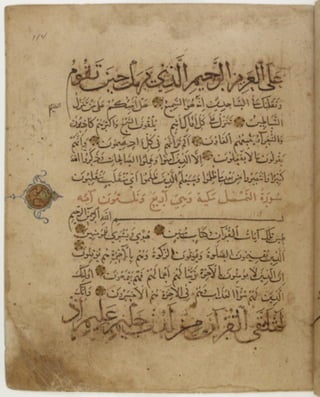 على العزيز الرحيم الذي يراك حين تقوم
وتقلبك في الساجدين انه هو السميع العليم هل انبئكم على من تنزل
الشياطين تنزل على كل افاك اثيم يلقون السمع واكثرهم كاذبون
والشعراء يتبعهم الغاوون الم تر انهم في كل واد يهيمون وانهم
يقولون ما لا يفعلون الا الذين آمنوا وعملوا الصالحات وذكروا الله
كثيرا وانتصروا من بعد ما ظلموا وسيعلم الذين ظلموا اي منقلب ينقلبون
سورة النمل مكية وهي اربع وتسعون آية
بسم الله الرحمن الرحيم
طس تلك آيات القرآن وكتاب مبين هدى وبشرى للمؤمنين
الذين يقيمون الصلوة ويؤتون الزكوة وهم بالآخرة هم يوقنون
ان الذين لا يؤمنون بالآخرة زينا لهم اعمالهم فهم يعمهون اولئك
الذين لهم سوء العذاب وهم في الآخرة هم الاخسرون وانك
لتلقى القرآن من لدن حكيم عليم اذ